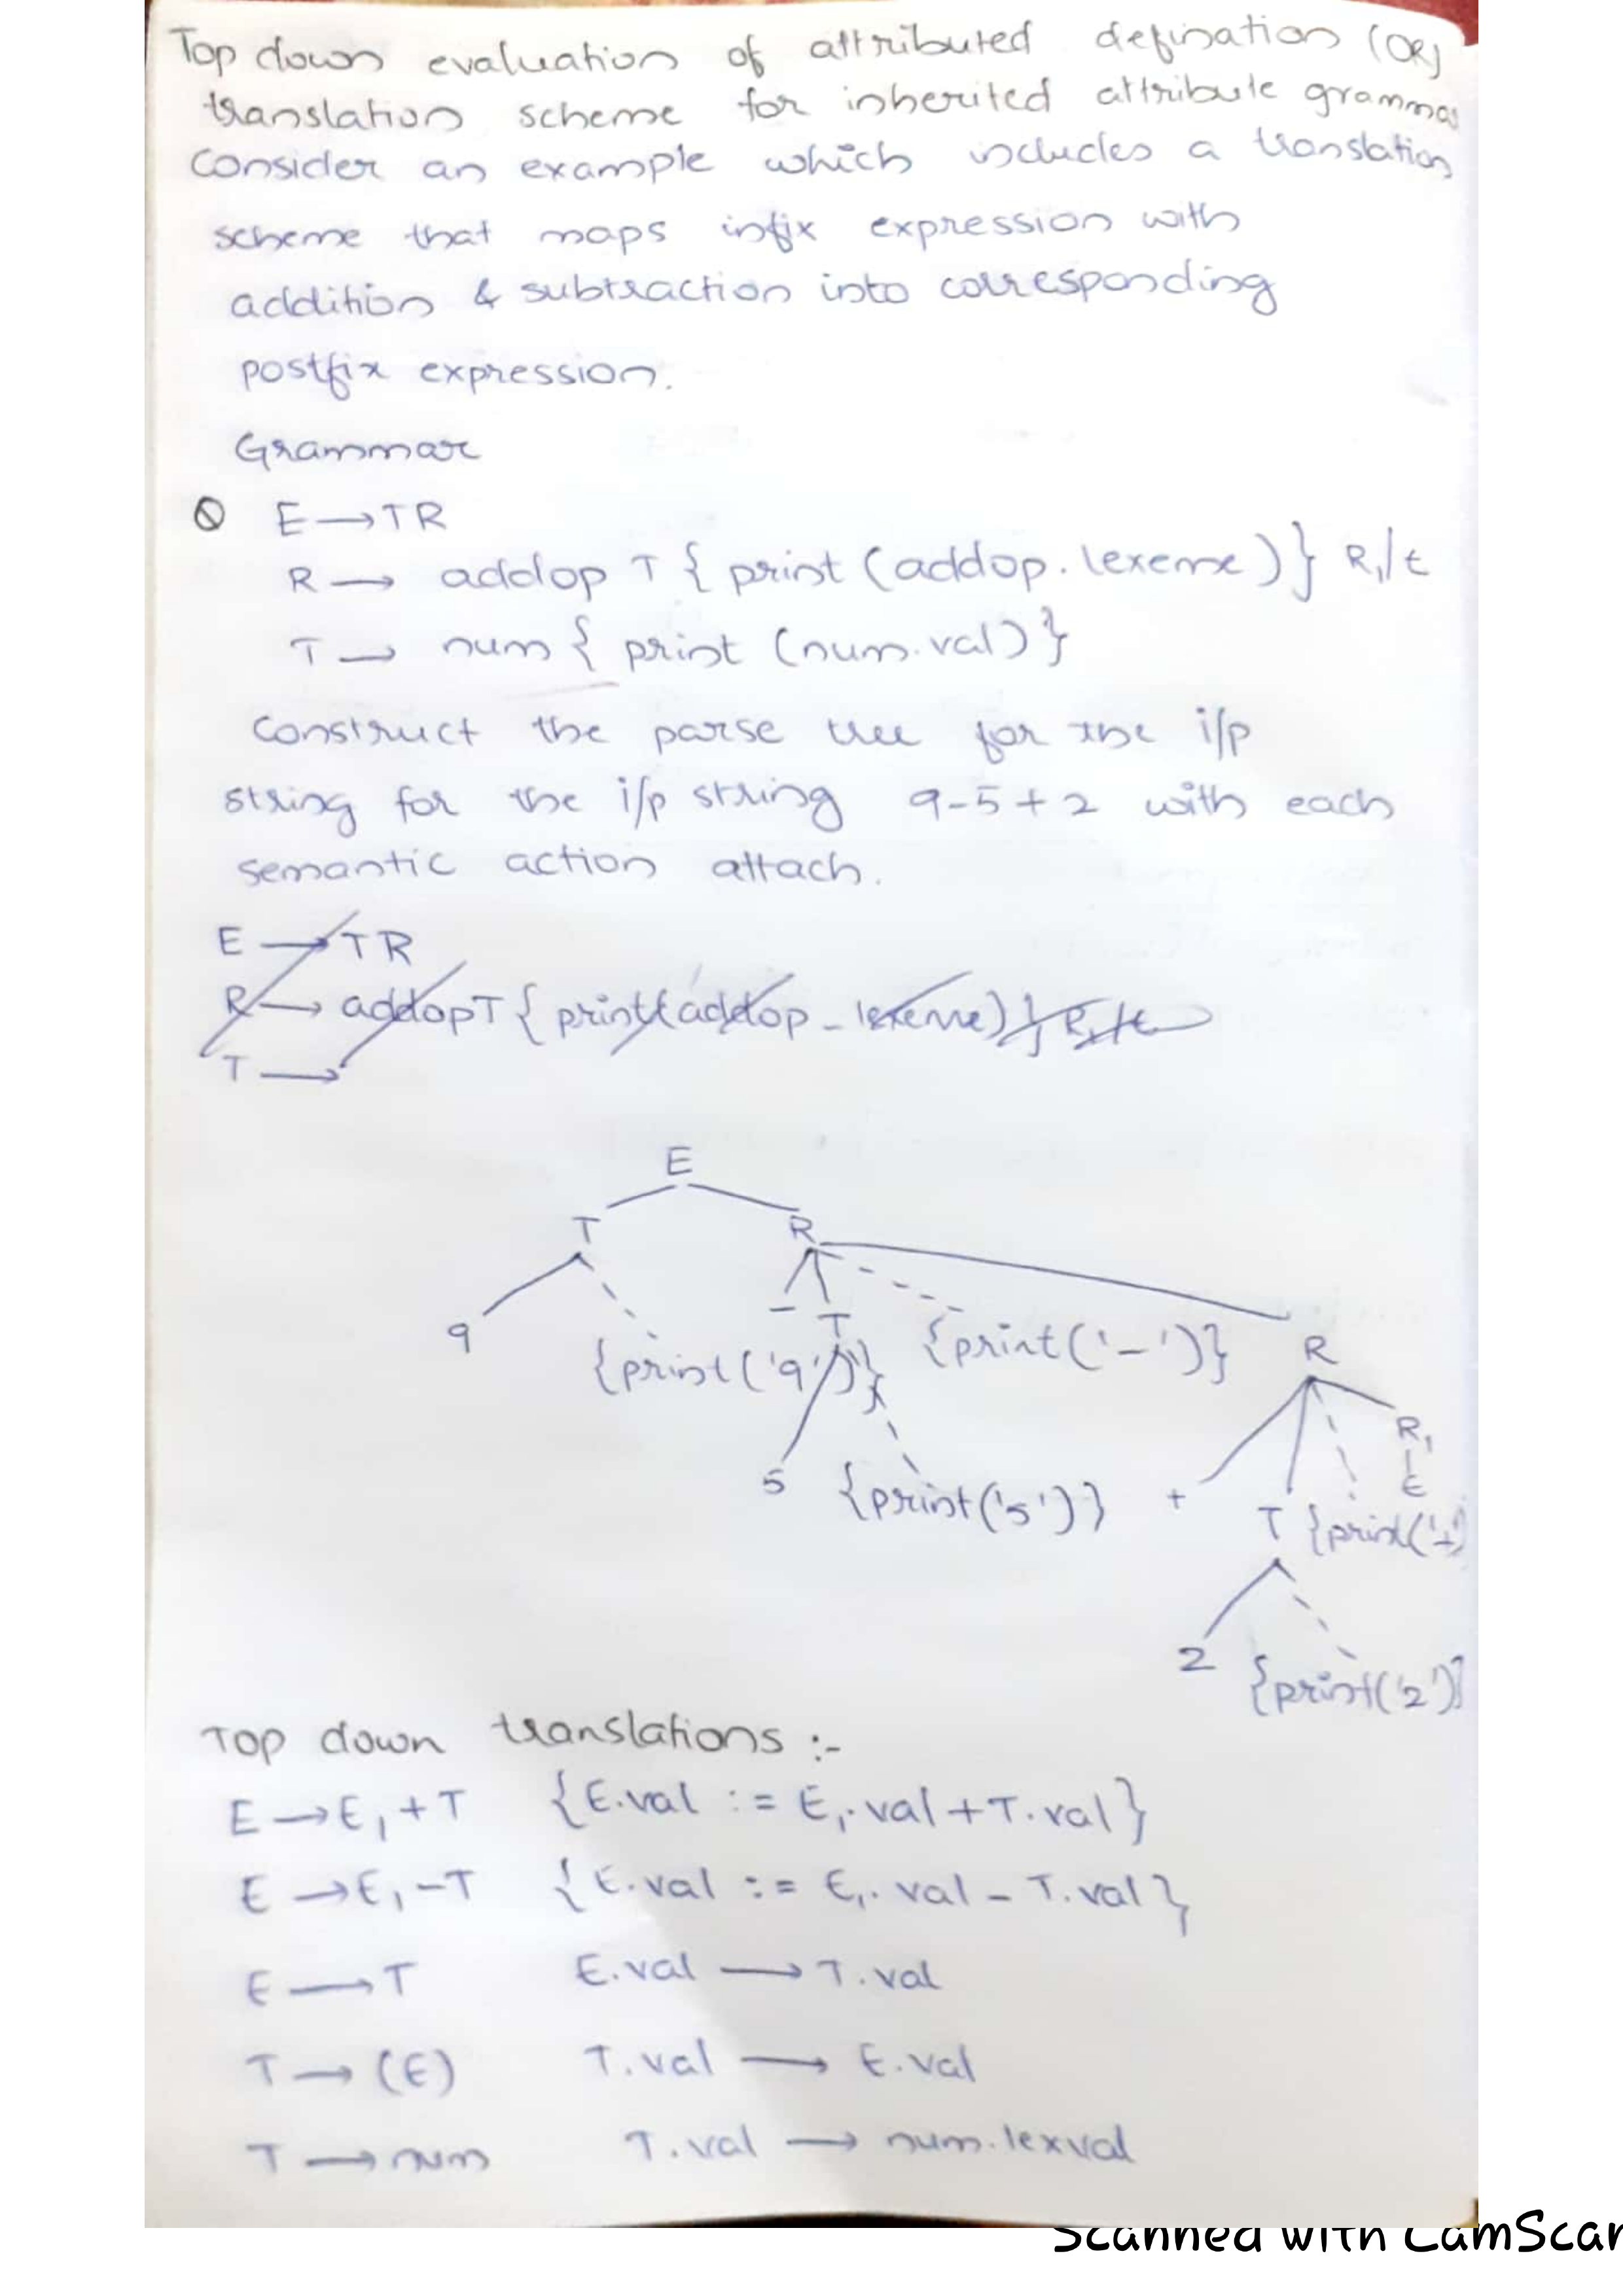 Top down evaluation of attributed defination (OR)
translation scheme for inherited attribute grammar
Consider an example which includes a translation
scheme that maps infix expression with
addition & subtraction into corresponding
postfix expression.
Grammar
E → TR
R → addop T { print (addop. lexeme) } R₁/ε
T → num { print (num.val) }
Construct the parse tree for the i/p
string for the i/p string 9-5+2 with each
semantic action attach.
E → TR
R → addop T { print(addop - lexeme) } R₁/ε
T →
E
T R
9 {print('9')} - T {print('-')} R
5 {print('5')} + T {print('+') R₁
ε
2 {print('2')}
Top down translations :-
E → E₁ + T {E.val := E₁.val + T.val}
E → E₁ - T {E.val := E₁.val - T.val}
E → T E.val → T.val
T → (E) T.val → E.val
T → num T.val → num.lexval
Scanned with CamScan